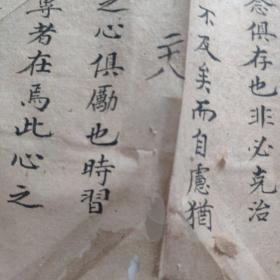 念俱存也非必克治
不及矣而自慮猶
二八
之心俱勵也時習
尊者在焉此心之